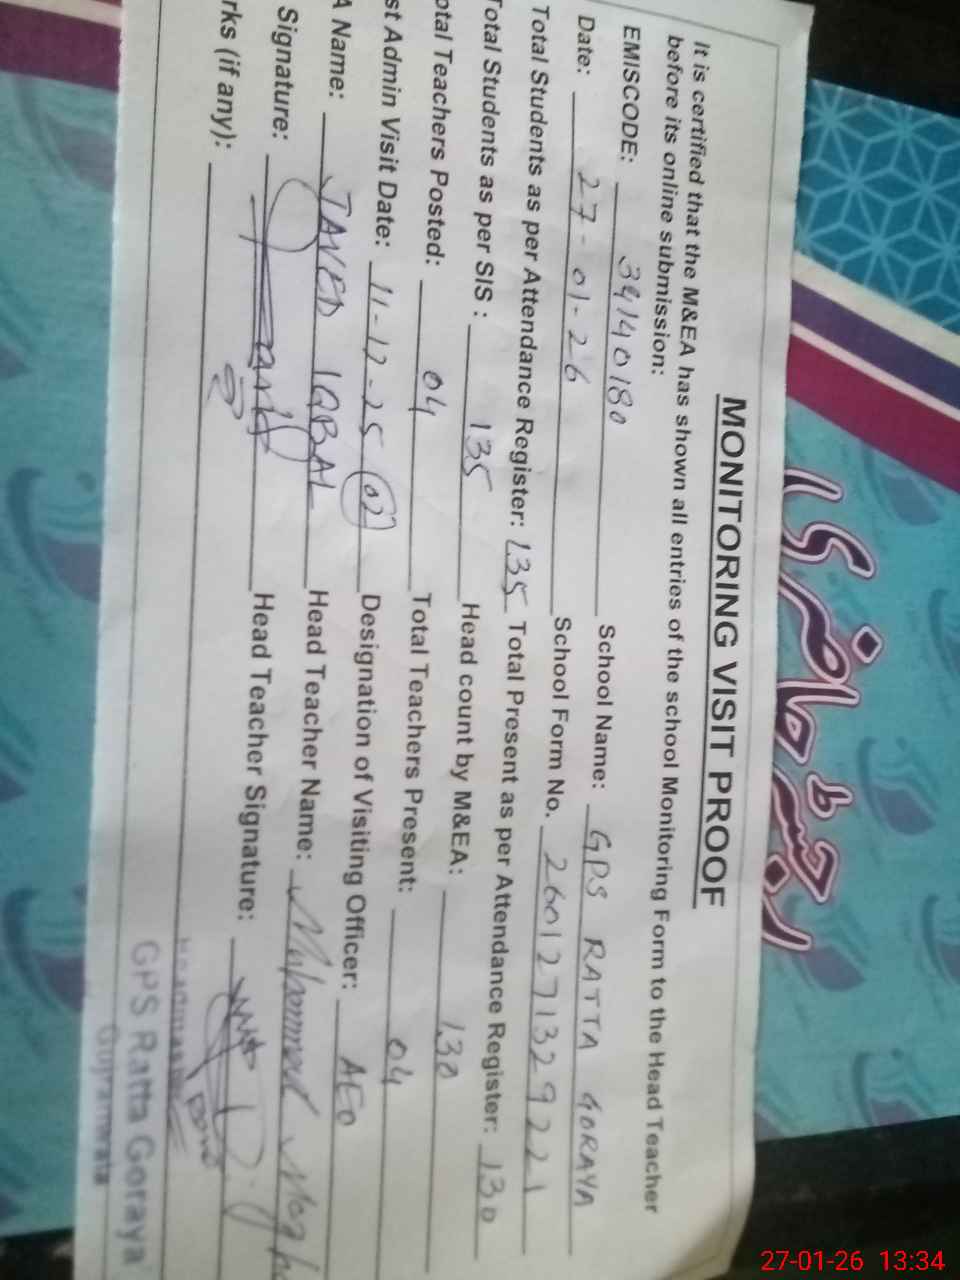 رجسٹر حاضری
MONITORING VISIT PROOF
It is certified that the M&EA has shown all entries of the school Monitoring Form to the Head Teacher
before its online submission:
EMISCODE: 34140180 School Name: GPS RATTA GORAYA
Date: 27-01-26 School Form No. 2601271329221
Total Students as per Attendance Register: 135 Total Present as per Attendance Register: 130
Total Students as per SIS : 135 Head count by M&EA: 130
otal Teachers Posted: 04 Total Teachers Present: 04
st Admin Visit Date: 11-12-25 02 Designation of Visiting Officer: AEO
A Name: JAVED IQBAL Head Teacher Name: Muhammad
Signature: Head Teacher Signature:
rks (if any):
GPS Ratta Goraya
Gujranwala
27-01-26 13:34